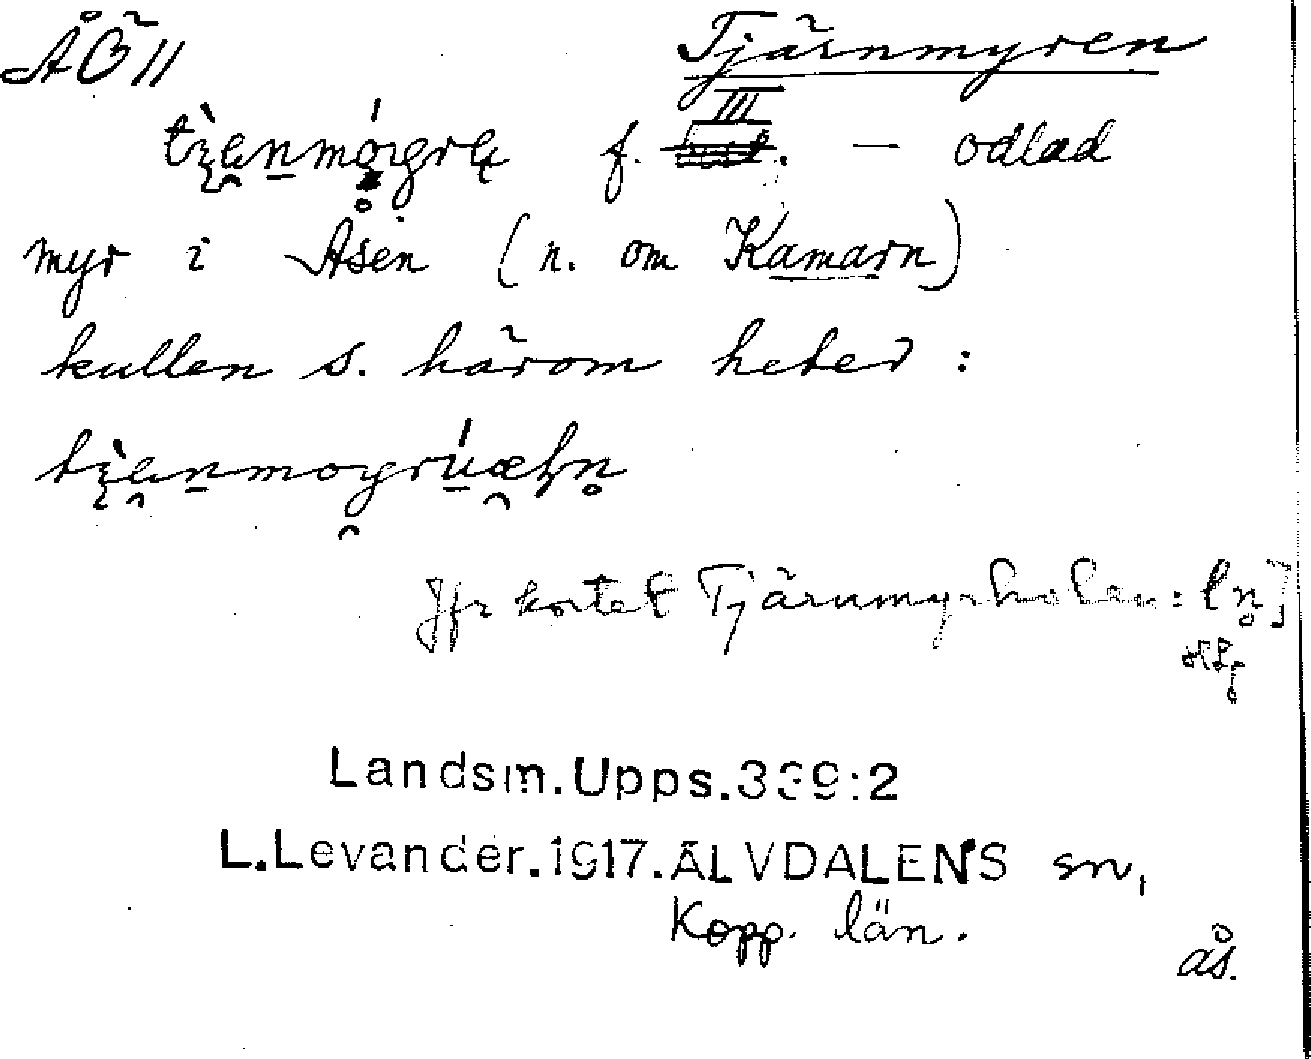 ÅÖ 11 Tjärnmyren
f. III — odlad
myr i Åsen (n. om Kamarn)
kullen s. härom heter :
Jfr kortet Tjärnmyrholen: ln̥]
Landsm.Upps.339:2
L.Levander.1917.ÄLVDALENS sn,
Kopp. län.
ås.